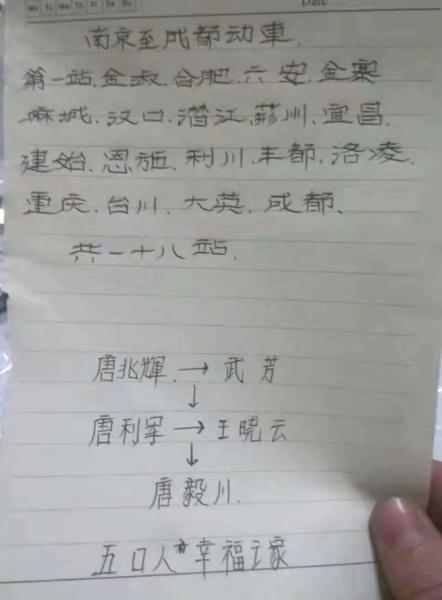 Mo Tu We Th Fr Sa Su
Date
南京至成都动車.
第一站.金椒.合肥.六安.金寨
麻城.汉口.潛江.荊州.宜昌.
建始.恩施.利川.丰都.洛凌.
重庆.台川.大英.成都.
共一十八站.
唐兆輝.→武芳
↓
唐利军→王晓云
↓
唐毅川.
五口人*幸福之家